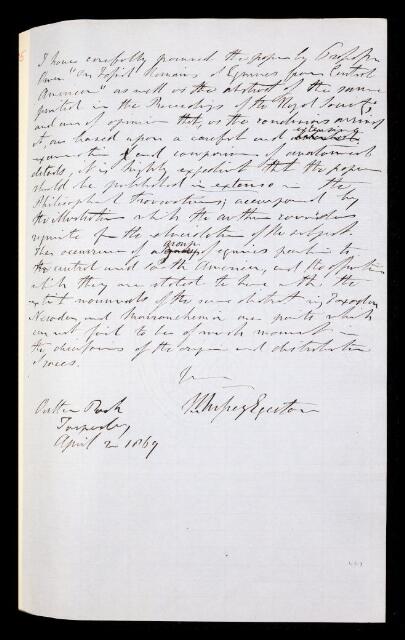 I have carefully perused the paper by Professor
Owen "On Fossil Remains of Equines from Central
America" as well as the abstract of the same
printed in the Proceedings of the Royal Society,
and am of opinion that, as the conclusions arrived
at, are based upon a careful and extensive
examination and comparison of anatomical
details, it is highly expedient that the paper
should be published in extenso in the
Philosophical Transactions; accompanied by
the illustrations which the author considers
requisite for the elucidation of the subject.
The occurrence of a group of equines peculiar to
the central and South Americas, and the affinities
which they are stated to have with the
extinct mammals of the same district viz, Toxodon,
Nesodon, and Macrauchenia are points which
can not fail to be of much moment in
the discussions of the origin and distribution
of races.
P. de M Grey Egerton
Oulton Park
Tarporley
April 2 1869